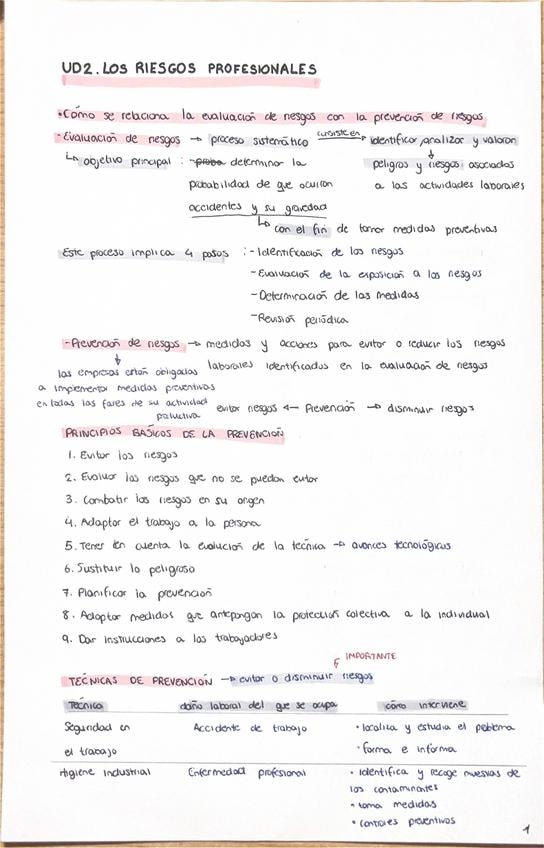 UD2. LOS RIESGOS PROFESIONALES
• Cómo se relaciona la evaluación de riesgos con la prevención de riesgos
- Evaluación de riesgos → proceso sistemático consiste en identificar, analizar y valorar
↳ objetivo principal : determinar la peligros y riesgos asociados
probabilidad de que ocurran a las actividades laborales
accidentes y su gravedad
↳ con el fin de tomar medidas preventivas
Este proceso implica 4 pasos : - Identificación de los riesgos
- Evaluación de la exposición a los riesgos
- Determinación de las medidas
- Revisión periódica
- Prevención de riesgos → medidas y acciones para evitar o reducir los riesgos
laborales identificados en la evaluación de riesgos
las empresas están obligadas
a implementar medidas preventivas
en todas las fases de su actividad
evitar riesgos ← Prevención → disminuir riesgos
PRINCIPIOS BÁSICOS DE LA PREVENCIÓN
1. Evitar los riesgos
2. Evaluar los riesgos que no se puedan evitar
3. Combatir los riesgos en su origen
4. Adaptar el trabajo a la persona
5. Tener en cuenta la evolución de la técnica → avances tecnológicos
6. Sustituir lo peligroso
7. Planificar la prevención
8. Adoptar medidas que antepongan la protección colectiva a la individual
9. Dar instrucciones a los trabajadores
IMPORTANTE
TÉCNICAS DE PREVENCIÓN → evitar o disminuir riesgos
Técnica daño laboral del que se ocupa cómo interviene
Seguridad en Accidente de trabajo • localiza y estudia el problema
el trabajo • forma e informa
Higiene Industrial Enfermedad profesional • Identifica y recoge muestras de
los contaminantes
• toma medidas
• controles preventivos
1